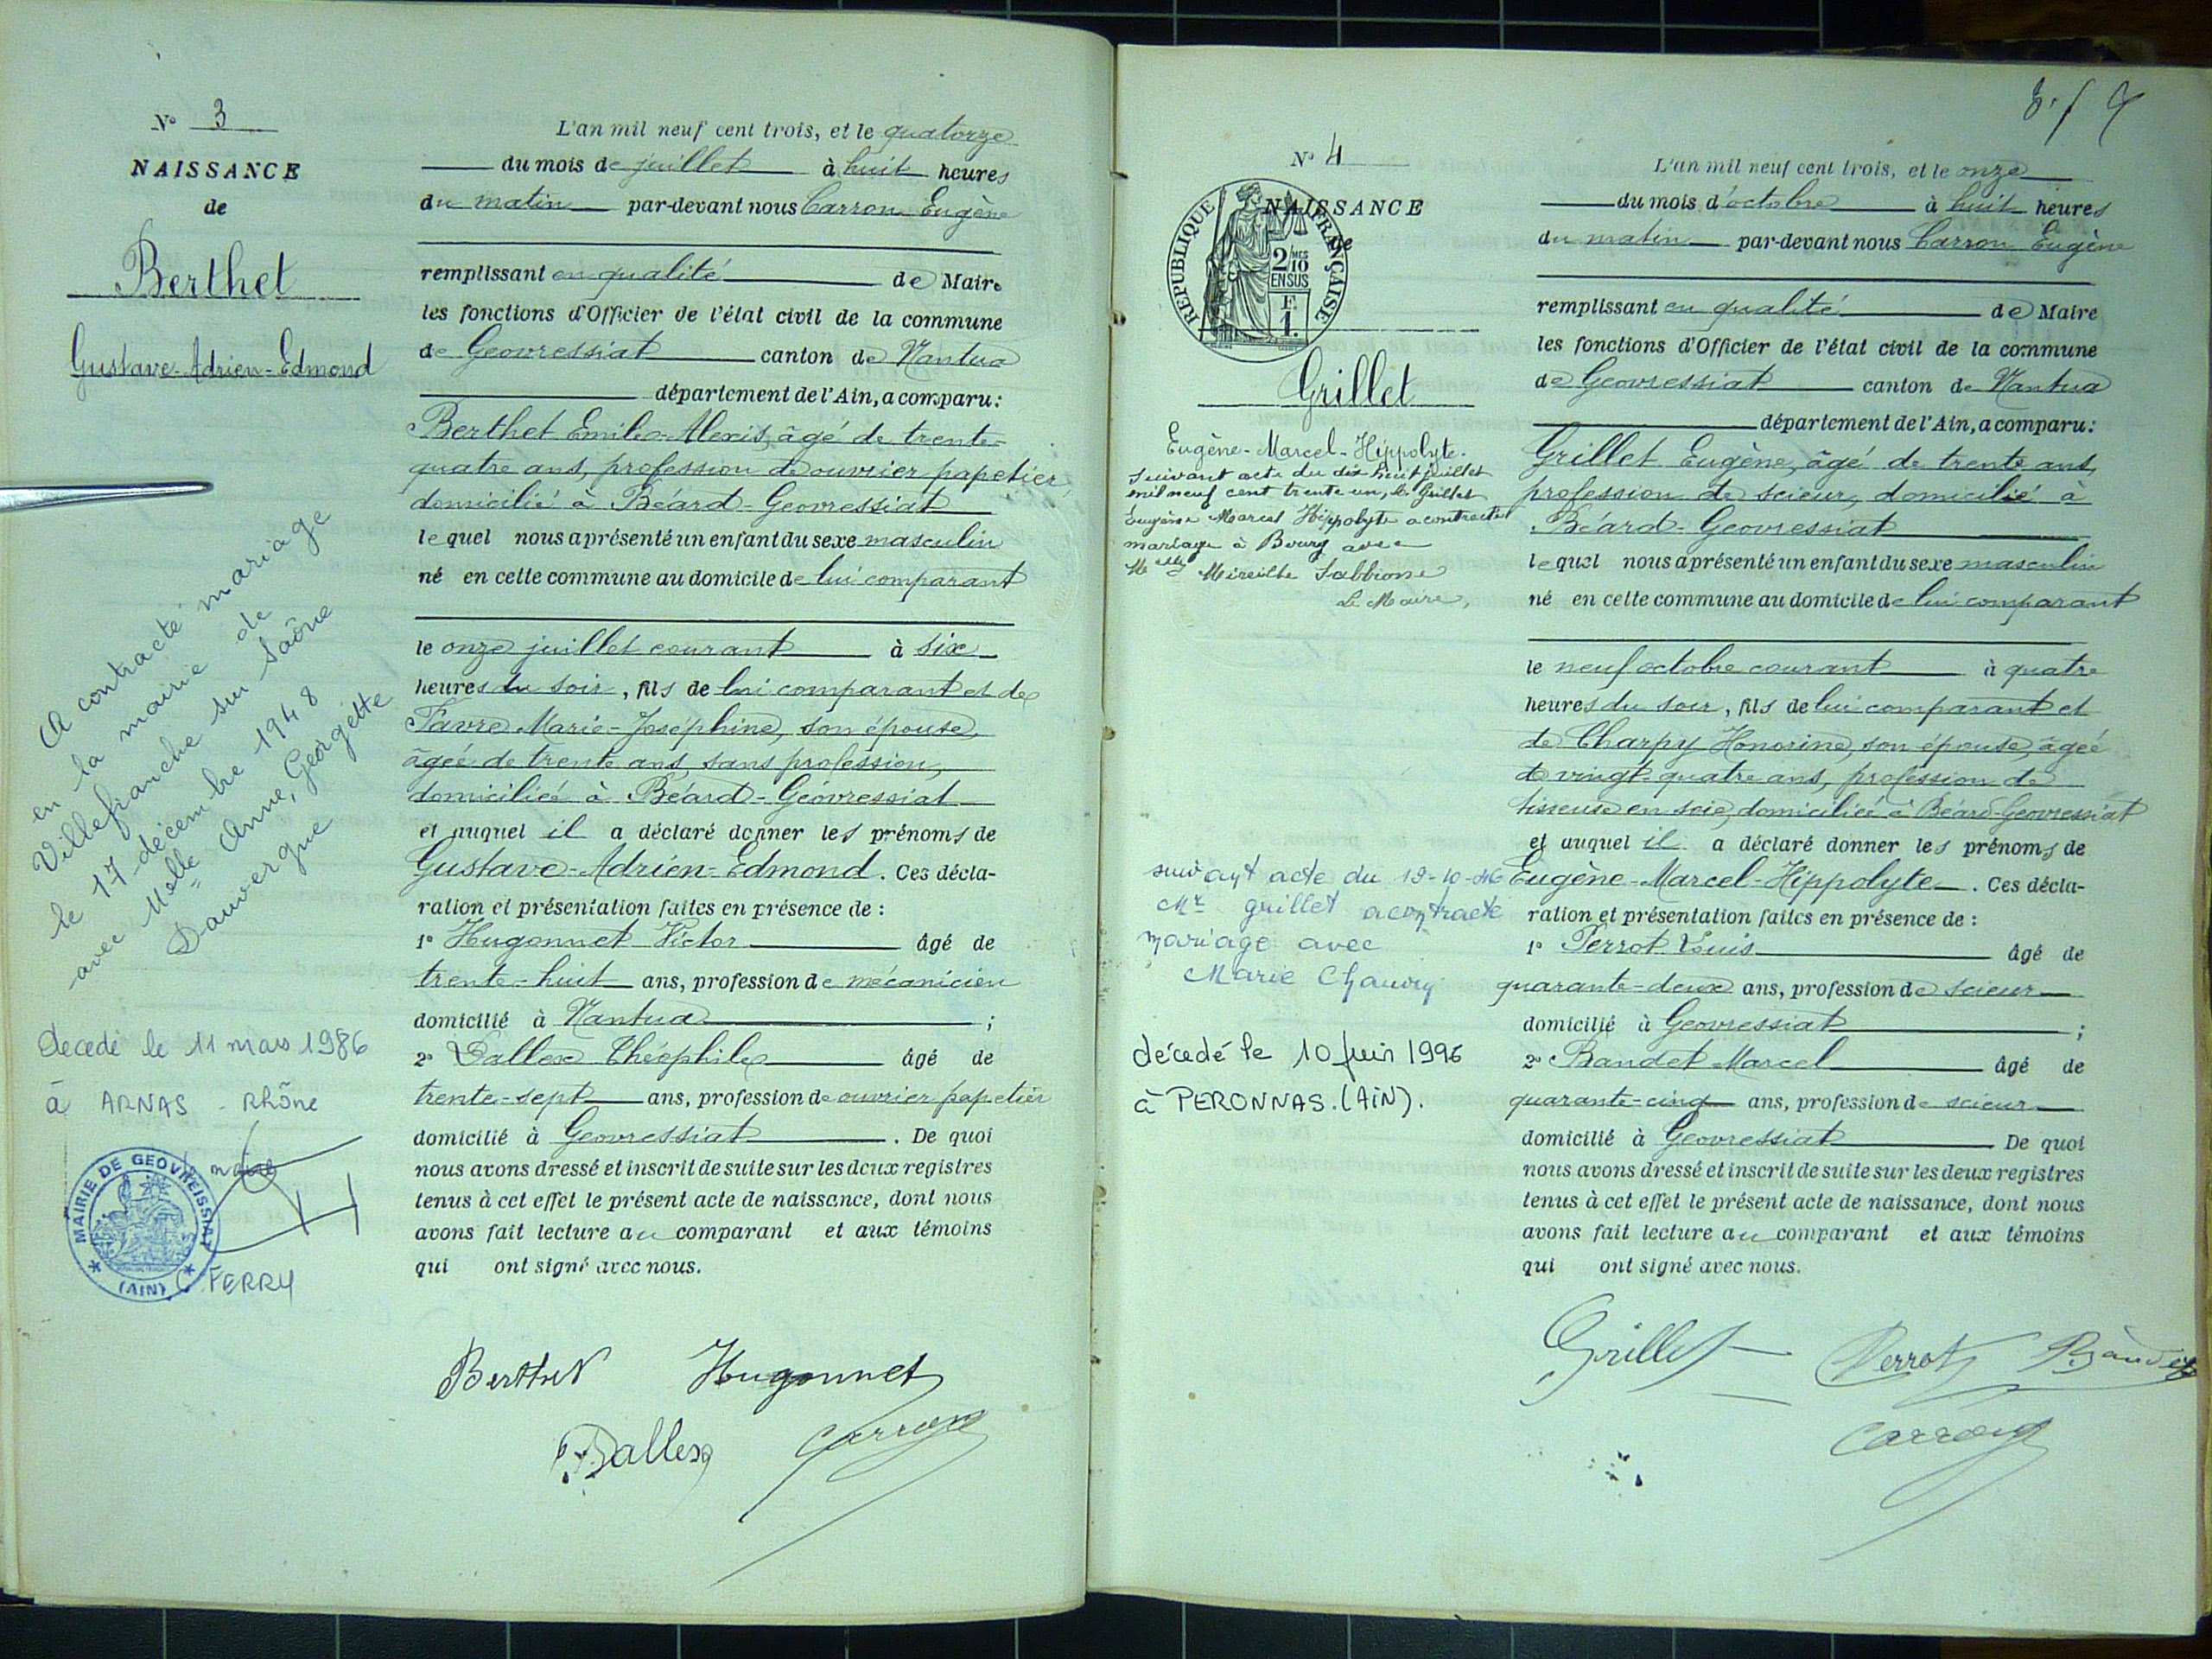 N° 3
NAISSANCE
de
Berthet
Gustave-Adrien-Edmond
A contracté mariage
en la mairie de
Villefranche sur Saône
le 17 décembre 1948
avec Melle Anne, Georgette
Dauvergne
décédé le 11 mars 1986
à ARNAS - Rhône
MAIRIE DE GEOVREISSIAT
(AIN)
FERRY
L'an mil neuf cent trois, et le quatorze
du mois de juillet à huit heures
du matin par-devant nous Carron Eugène
remplissant en qualité de Maire
les fonctions d'Officier de l'état civil de la commune
de Geovressiat canton de Nantua
département de l'Ain, a comparu:
Berthet Emile-Alexis, âgé de trente-
quatre ans, profession de ouvrier papetier,
domicilié à Béard-Geovressiat
lequel nous a présenté un enfant du sexe masculin
né en cette commune au domicile de lui comparant
le onze juillet courant à six
heures du soir, fils de lui comparant et de
Favre Marie-Joséphine, son épouse,
âgée de trente ans, sans profession,
domiciliée à Béard-Géovressiat
et auquel il a déclaré donner les prénoms de
Gustave-Adrien-Edmond. Ces décla-
ration et présentation faites en présence de :
1° Hugonnet Victor âgé de
trente-huit ans, profession de mécanicien
domicilié à Nantua ;
2° Dallex Théophile âgé de
trente-sept ans, profession de ouvrier papetier
domicilié à Geovressiat. De quoi
nous avons dressé et inscrit de suite sur les deux registres
tenus à cet effet le présent acte de naissance, dont nous
avons fait lecture au comparant et aux témoins
qui ont signé avec nous.
Berthet Hugonnet
Dallex Carron
N° 4
NAISSANCE
de
REPUBLIQUE FRANÇAISE
2/10 MES
EN SUS
F.
1.
Grillet
Eugène-Marcel-Hippolyte.
Suivant acte du dix huit juillet
mil neuf cent trente un, le Grillet
Eugène Marcel Hippolyte a contracté
mariage à Bourg avec
Melle Mireille
Le Maire,
suivant acte du 19-10-46
Mr grillet a contracté
mariage avec
Marie
décédé le 10 juin 1996
à PERONNAS. (AIN).
L'an mil neuf cent trois, et le onze
du mois d'octobre à huit heures
du matin par-devant nous Carron Eugène
remplissant en qualité de Maire
les fonctions d'Officier de l'état civil de la commune
de Geovressiat canton de Nantua
département de l'Ain, a comparu:
Grillet Eugène, âgé de trente ans,
profession de scieur, domicilié à
Béard-Geovressiat
lequel nous a présenté un enfant du sexe masculin
né en cette commune au domicile de lui comparant
le neuf octobre courant à quatre
heures du soir, fils de lui comparant et
de Charpy Honorine, son épouse, âgée
de vingt-quatre ans, profession de
tisseuse en soie, domiciliée à Béard-Geovressiat
et auquel il a déclaré donner les prénoms de
Eugène-Marcel-Hippolyte. Ces décla-
ration et présentation faites en présence de :
1° Perrot Louis âgé de
quarante-deux ans, profession de scieur
domicilié à Geovressiat ;
2° Bandet Marcel âgé de
quarante-cinq ans, profession de scieur
domicilié à Geovressiat De quoi
nous avons dressé et inscrit de suite sur les deux registres
tenus à cet effet le présent acte de naissance, dont nous
avons fait lecture au comparant et aux témoins
qui ont signé avec nous.
Grillet Perrot Bandet
Carron